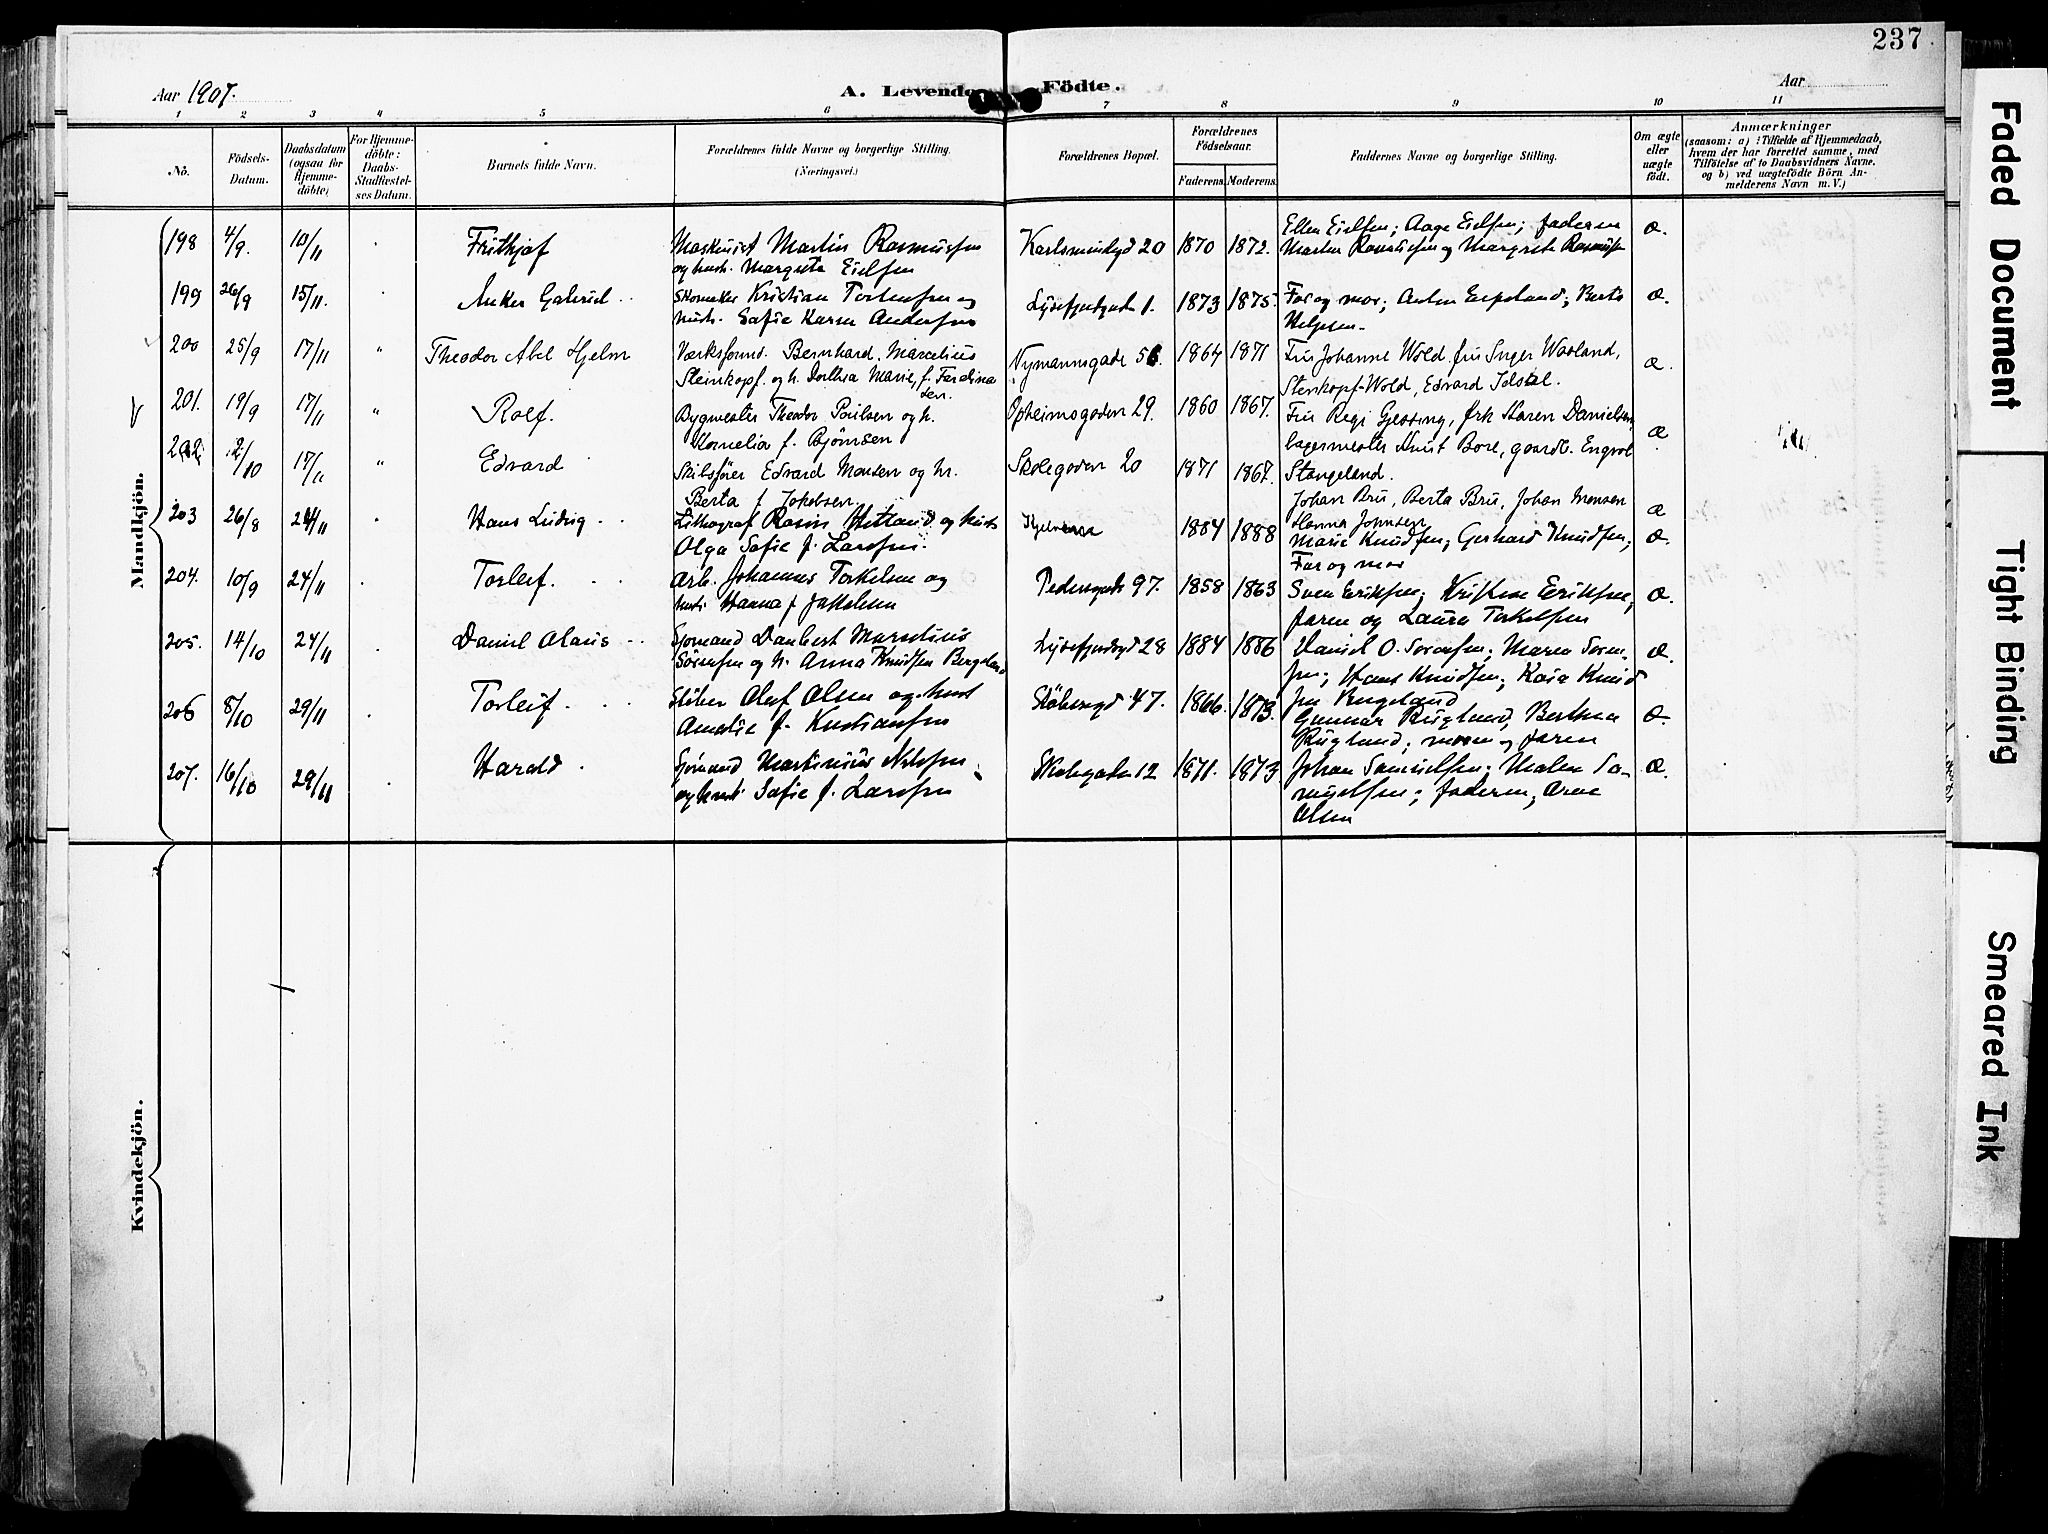 237
Aar 1907.
A. Levende Födte.
Aar
1 2 3 4 5 6 7 8 9 10 11
Nō.
Födsels-Datum.
Daabsdatum (ogsaa for Hjemme-döbte)
For Hjemme-döbte: Daabs-Stadfæstel-ses Datum.
Barnets fulde Navn.
Forældrenes fulde Navne og borgerlige Stilling.
(Næringsvei.)
Forældrenes Bopæl.
Forældrenes Födselsaar.
Faderens. Moderens.
Faddernes Navne og borgerlige Stilling.
Om ægte eller uægte födt.
Anmærkninger
(saasom: a) i Tilfælde af Hjemmedaab,
hvem der har forrettet samme, med
Tilföielse af to Daabsvidners Navne.
og b) ved uægtefödte Börn An-
melderens Navn m. V.)
Mandkjön.
198 4/9. 10/11 Frithjof Maskinist Martin Rasmussen Karlsmindegd 20 1870 1872. Ellen Eielsen; Aage Eielsen; faderen æ.
og hust. Margreta Eielsen Martin Rasmussen og Margrete Rasmussen
199 26/9 15/11. Anker Gabriel Skomaker Kristian Torkelsen og Lysefjordgaden 1. 1873 1875. Far og mor; Anton Espeland; Berte æ.
hust. Sofie Karen Andersen Helgesen.
200 25/9 17/11 " Theodor Abel Hjelm Værksformd. Bernhard Marcelius Nymannsgade 56. 1864 1871 Fru Johanne Wold, fru Inger Waaland, æ.
Steinkopf. og h. Dorthea Marie, f. Ferdinandsen. Stenkopf-Wold, Edvard Idsal.
201. 19/9 17/11 " Rolf. Bygmester Theodor Poulsen og h. Opheimsgaden 29. 1860 1867. Fru Regi Gjessing, frk Karen Danielsen, æ
Kornelia f. Bjørnsen lagermester Knut Bore, gaardb. Engvol
202 2/10 17/11 " Edvard Skibsfører Edvard Monsen og h. Skolegaden 20 1871 1867. Stangeland.
Berta f. Jakobsen. Johan Bru, Berta Bru, Johan Monsen æ
Hanna Johnsen
203 26/8 24/11 Hans Ludvig Lithograf Rasm Hetland og hust. 1884 1888 Marie Knudsen; Gerhard Knudsen; æ.
Olga Sofie f. Larsen. Far og mor
204. 10/9 24/11 Torleif. Arb. Johannes Torkelsen og Pedersgade 97. 1858 1863 Sven Eriksen; Kristine Eriksen; æ.
hust. Hanna f. Jakobsen faren og Laura Torkelsen
205. 14/10 24/11 Daniel Olaus Sjømand Danbert Marselius Lysefjordsgd 28 1884 1886 Daniel O. Sørensen; Maren Søren- æ.
Sørensen og h. Anna Knudsen Bergeland sen; Hans Knudsen; Kaia Knud
206 8/10 29/11 Torleif. Støber Oluf Olsen og hust Støbergd 47. 1866. 1873. sen Bergeland
Amalie f. Kristiansen Gunnar Kugland, Berthea æ.
Kugland; moren og faren
207. 16/10 29/11 Harald Sjømand Martinius Nilsen Skolegaden 12 1871. 1873 Johan Samuelsen; Malen Sa- æ.
og hust. Sofie f. Larsen muelsen; faderen; Arne
Olsen
Kvindekjön.
Faded Document
Tight Binding
Smeared Ink